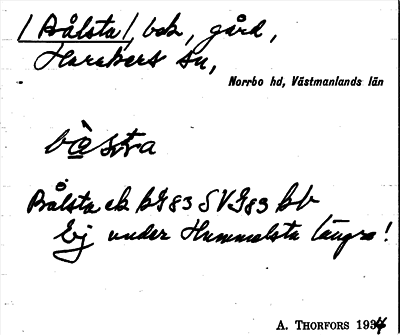 /Bålsta/, bok, gård,
Harakers sn,
Norrbo hd, Västmanlands län
bò̱stra
Bålsta ek bG83 SVG83 bb
Ej under Hummelsta längre!
A. THORFORS 1934